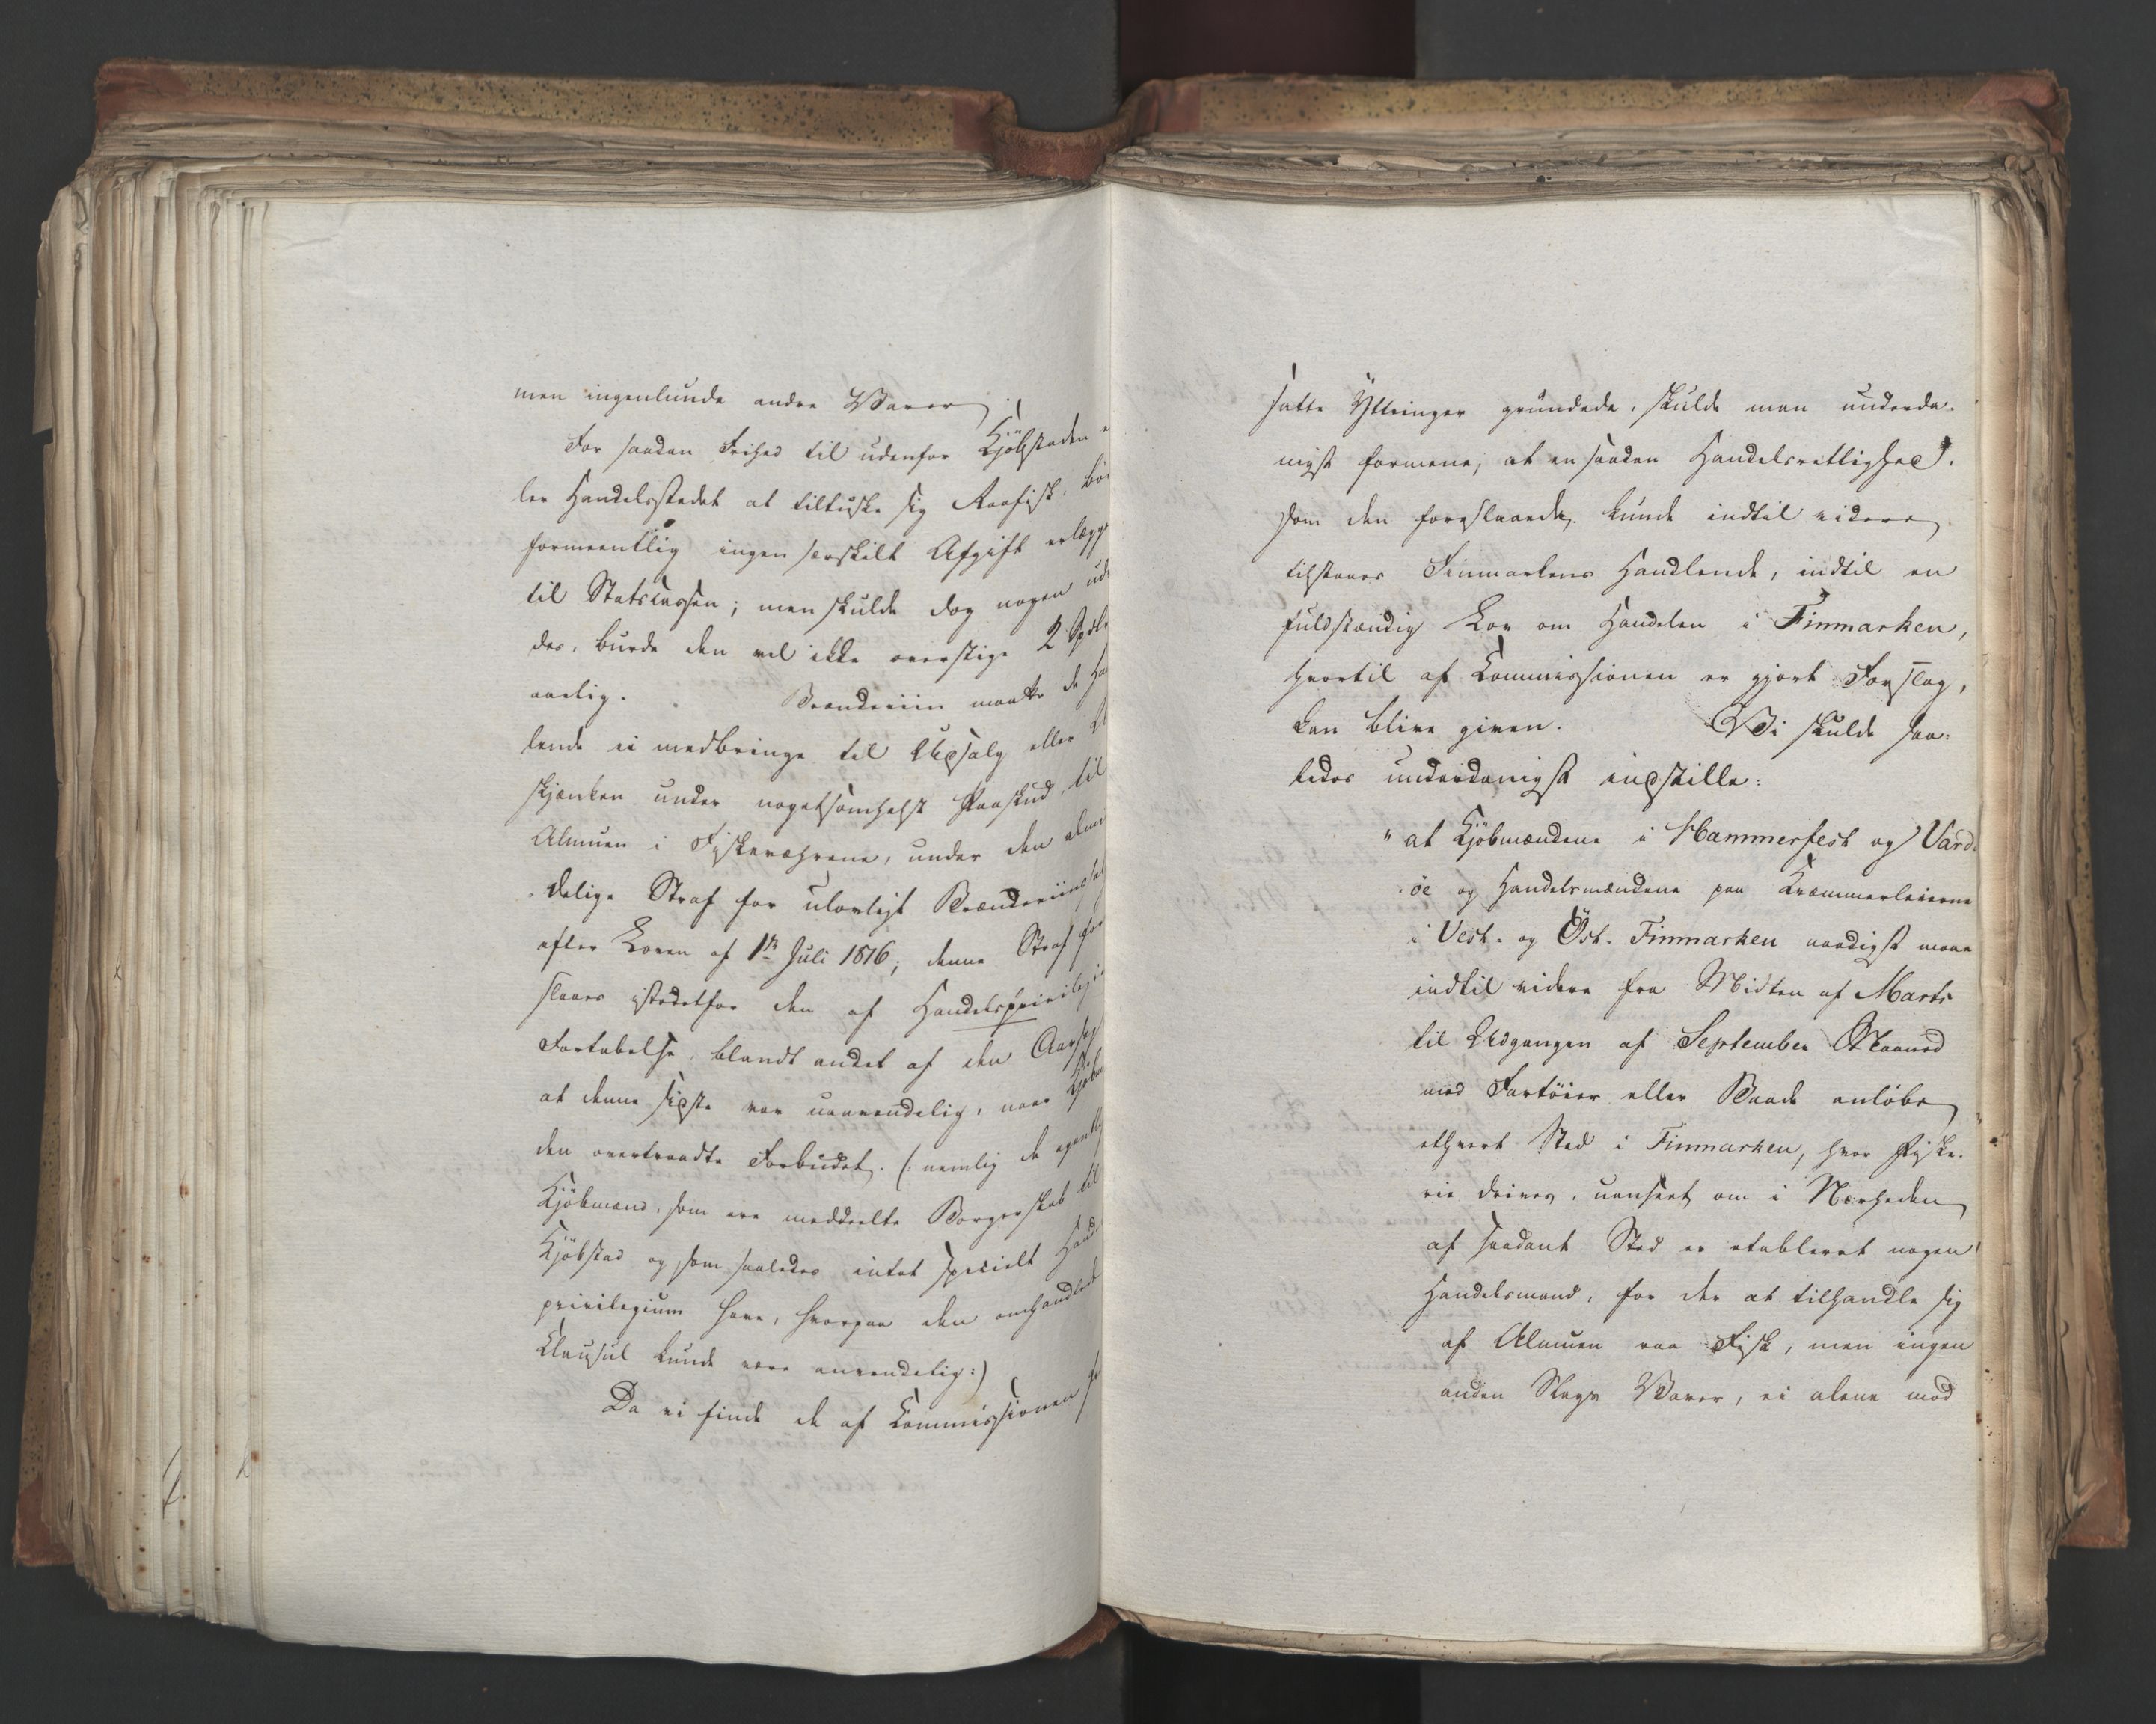 men ingenlunde andre Varer.
For saadan Frihed til udenfor Kjöbstaden e
ler Handelsstedet at tiltuske sig Raafisk, bör
formeentlig ingen særskilt Afgift erlægge
til Statscassen; men skulde dog nogen
des, burde den vel ikke overstige 2 Spdlr
aarlig. Brændeviin maatte de Han
lende ei medbringe til Udsalg eller U
skjænken under nogetsomhelst Paaskud til
Almuen i Fiskeværene, under den almi
delige Straf for ulovligt Brændeviinssal
efter Loven af 1te Juli 1816; denne Straf for
slaaes istedetfor den af Handelsprivilegie
Fortabelse, blandt andet af den Aarsag
at denne sidste var uanvendelig, naar Kjöbm
den overtraadte Forbudet. (: nemlig de egentlig
Kjöbmænd, som ere meddeelte Borgerskab til
Kjöbstad og som saaledes intet specielt Hand
privilegium have, hvorpaa den omhandlede
Clausul kunde være anvendelig:)
Da vi finde de af Commissionen fr
satte Yttringer grundede, skulde man underda-
nigst formene, at en saadan Handelsrettighed,
som den foreslaaede, kunde indtil videre
tilstaaes Finmarkens Handlende, indtil en
fuldstændig Lov om Handelen i Finmarken,
hvortil af Commissionen er gjort Forslag,
kan blive given. Vi skulde saa-
ledes underdanigst indstille:
"at Kjöbmændene i Hammerfest og Vard-
öe og Handelsmændene paa Kræmmerleierne
i Vest- og Öst-Finmarken naadigst maae
indtil videre fra Midten af Marts
til Udgangen af September Maaned
med Fartöier eller Baade anlöbe
ethvert Sted i Finmarken, hvor Fiske-
rie drives, uanseet om i Nærheden
af saadant Sted er etableret nogen
Handelsmand, for der at tilhandle sig
af Almuen raa Fisk, men ingen
anden Slags Varer, ei alene mod